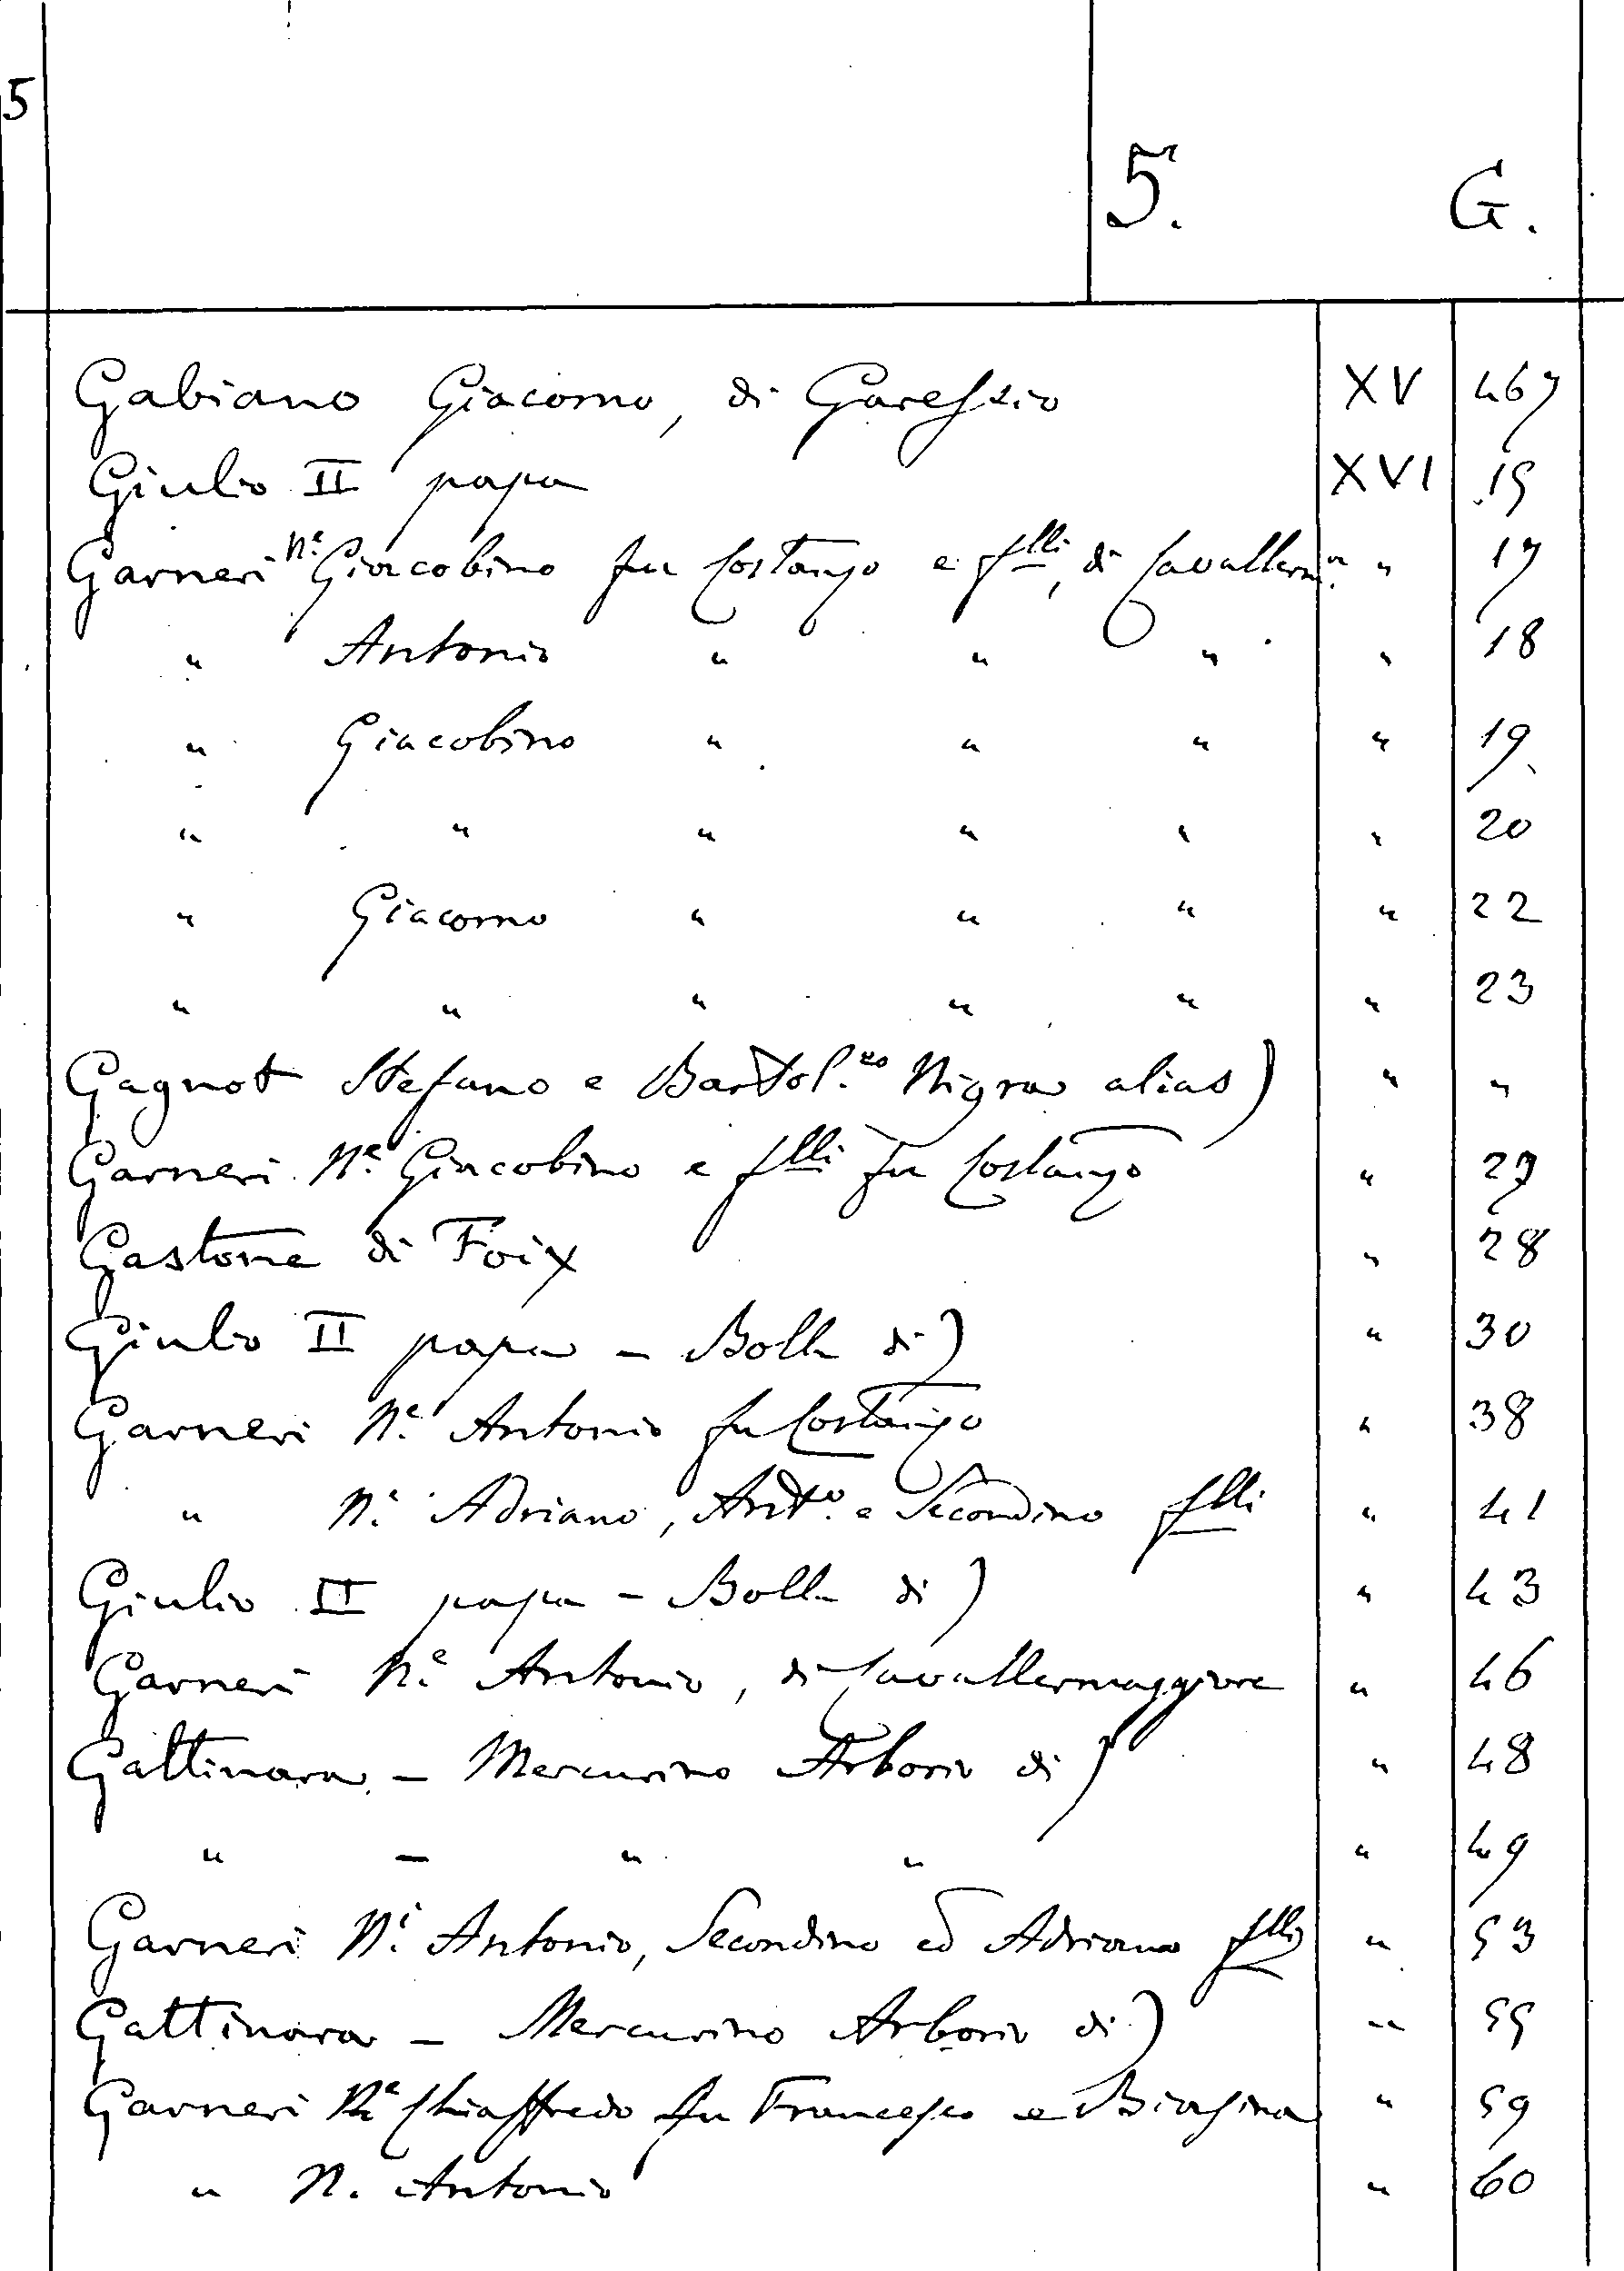 5
5. G.
Gabiano Giacomo, di Garessio XV 467
Giulio II papa XVI 15
Garneri N.e Giacobino fu Costanzo e f.lli, di Cavallerm.e " 17
" Antonio " " " " 18
" Giacobino " " " " 19
" " " " " " 20
" Giacomo " " " " 22
" " " " " " 23
Gagnot Stefano e Bartol.eo Nigra alias) " "
Garneri N.e Giacobino e f.lli fu Costanzo " 27
Gastone di Foix " 28
Giulio II papa - Bolla di) " 30
Garneri N.e Antonio fu Costanzo " 38
" N.i Adriano, Ant.o e Secondino f.lli " 41
Giulio II papa - Bolla di) " 43
Garneri N.e Antonio, di Cavallermaggiore " 46
Gattinara - Mercurino Arborio di) " 48
" - " " " 49
Garneri N.i Antonio, Secondino ed Adriano f.lli " 53
Gattinara - Mercurino Arborio di) " 55
Garneri N.e Chiaffredo fu Francesco e Biasina " 59
" N. Antonio " 60